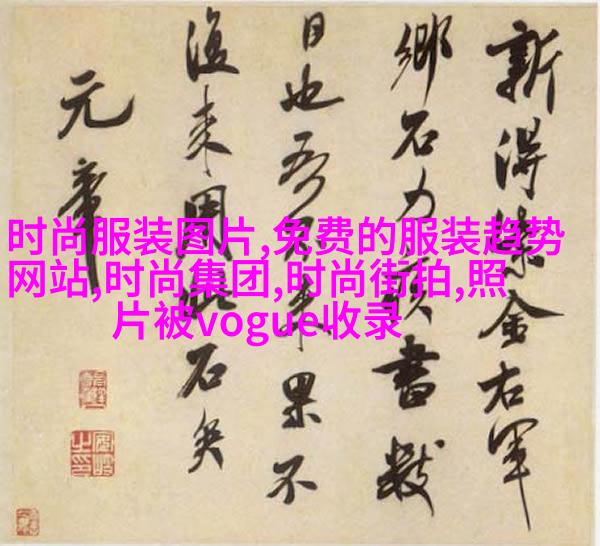 时尚服装图片,免费的服装趋势
网站,时尚集团,时尚街拍,照
片被vogue收录
新得紫金右軍
鄉石力疾書數
日也吾不來果不
復來用此石矣
元章